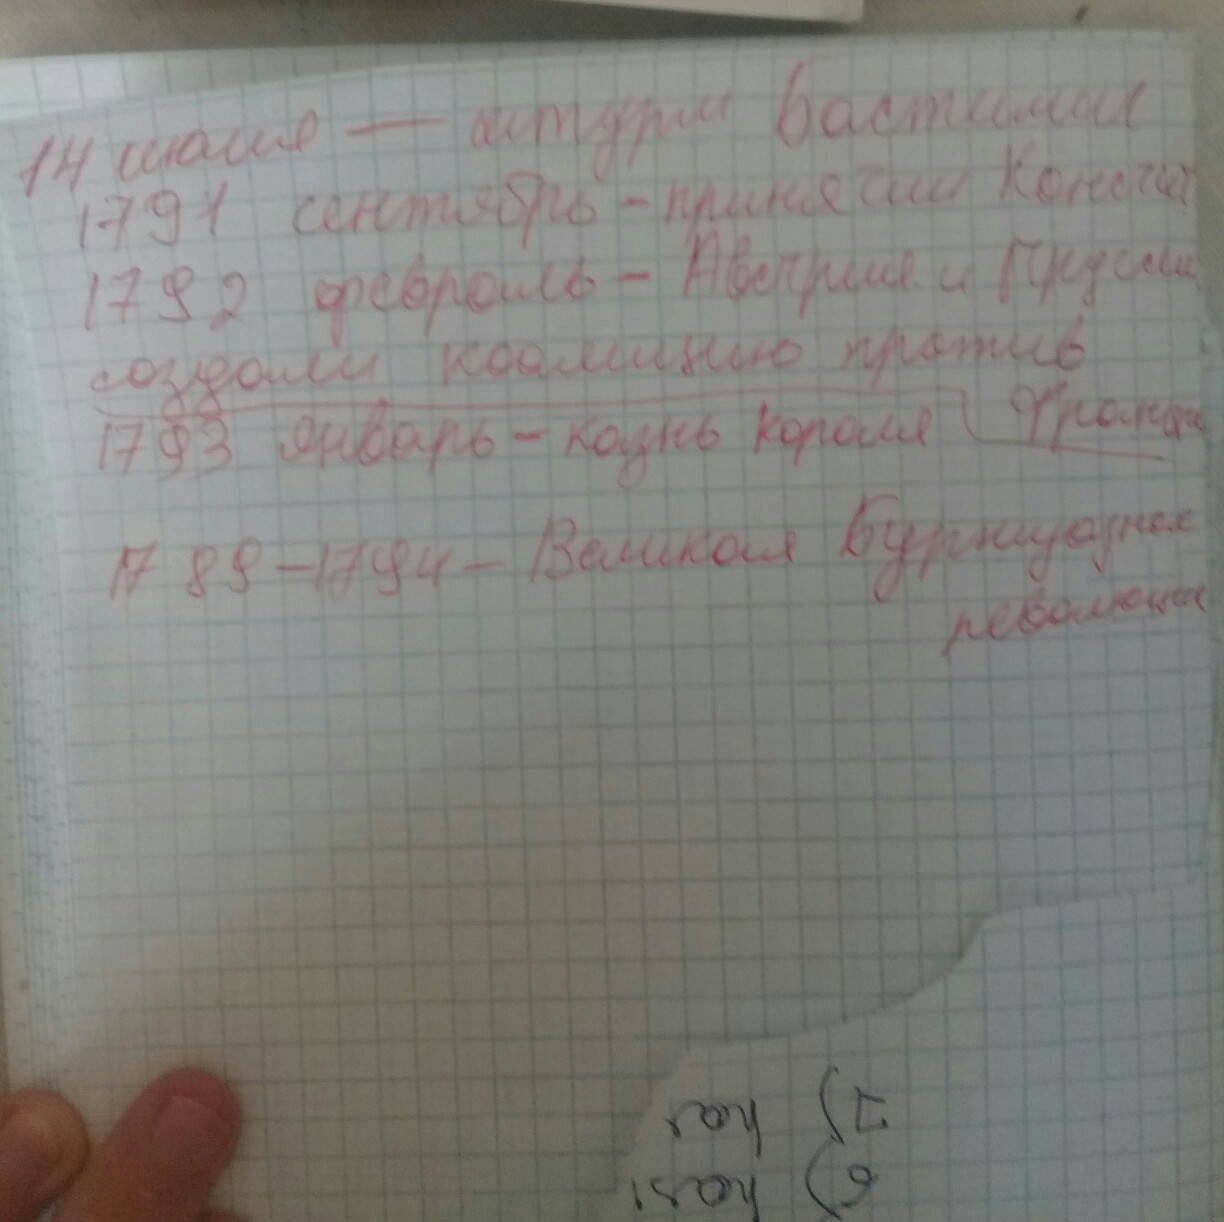 14 июля — штурм Бастилии
1791 сентябрь - приняли Констит
1792 февраль - Австрия и Пруссия
создали коалицию против
1793 январь - казнь короля Франции
1789-1794 - Великая Буржуазная
революция
7) has
6) has